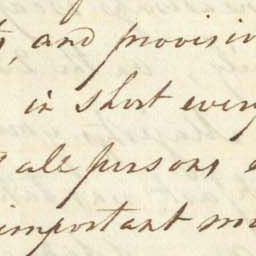 , and provisi
in short every
all persons
important m